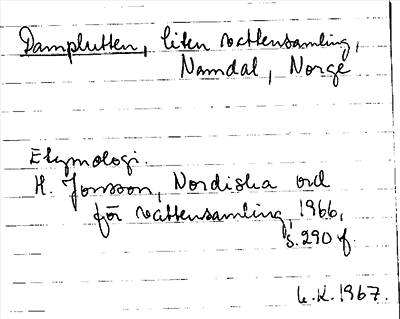 Damplutten, liten vattensamling,
Namdal, Norge
Etymologi.
H. Jonsson, Nordiska ord
för vattensamling, 1966,
s. 290 f.
L.K. 1967.